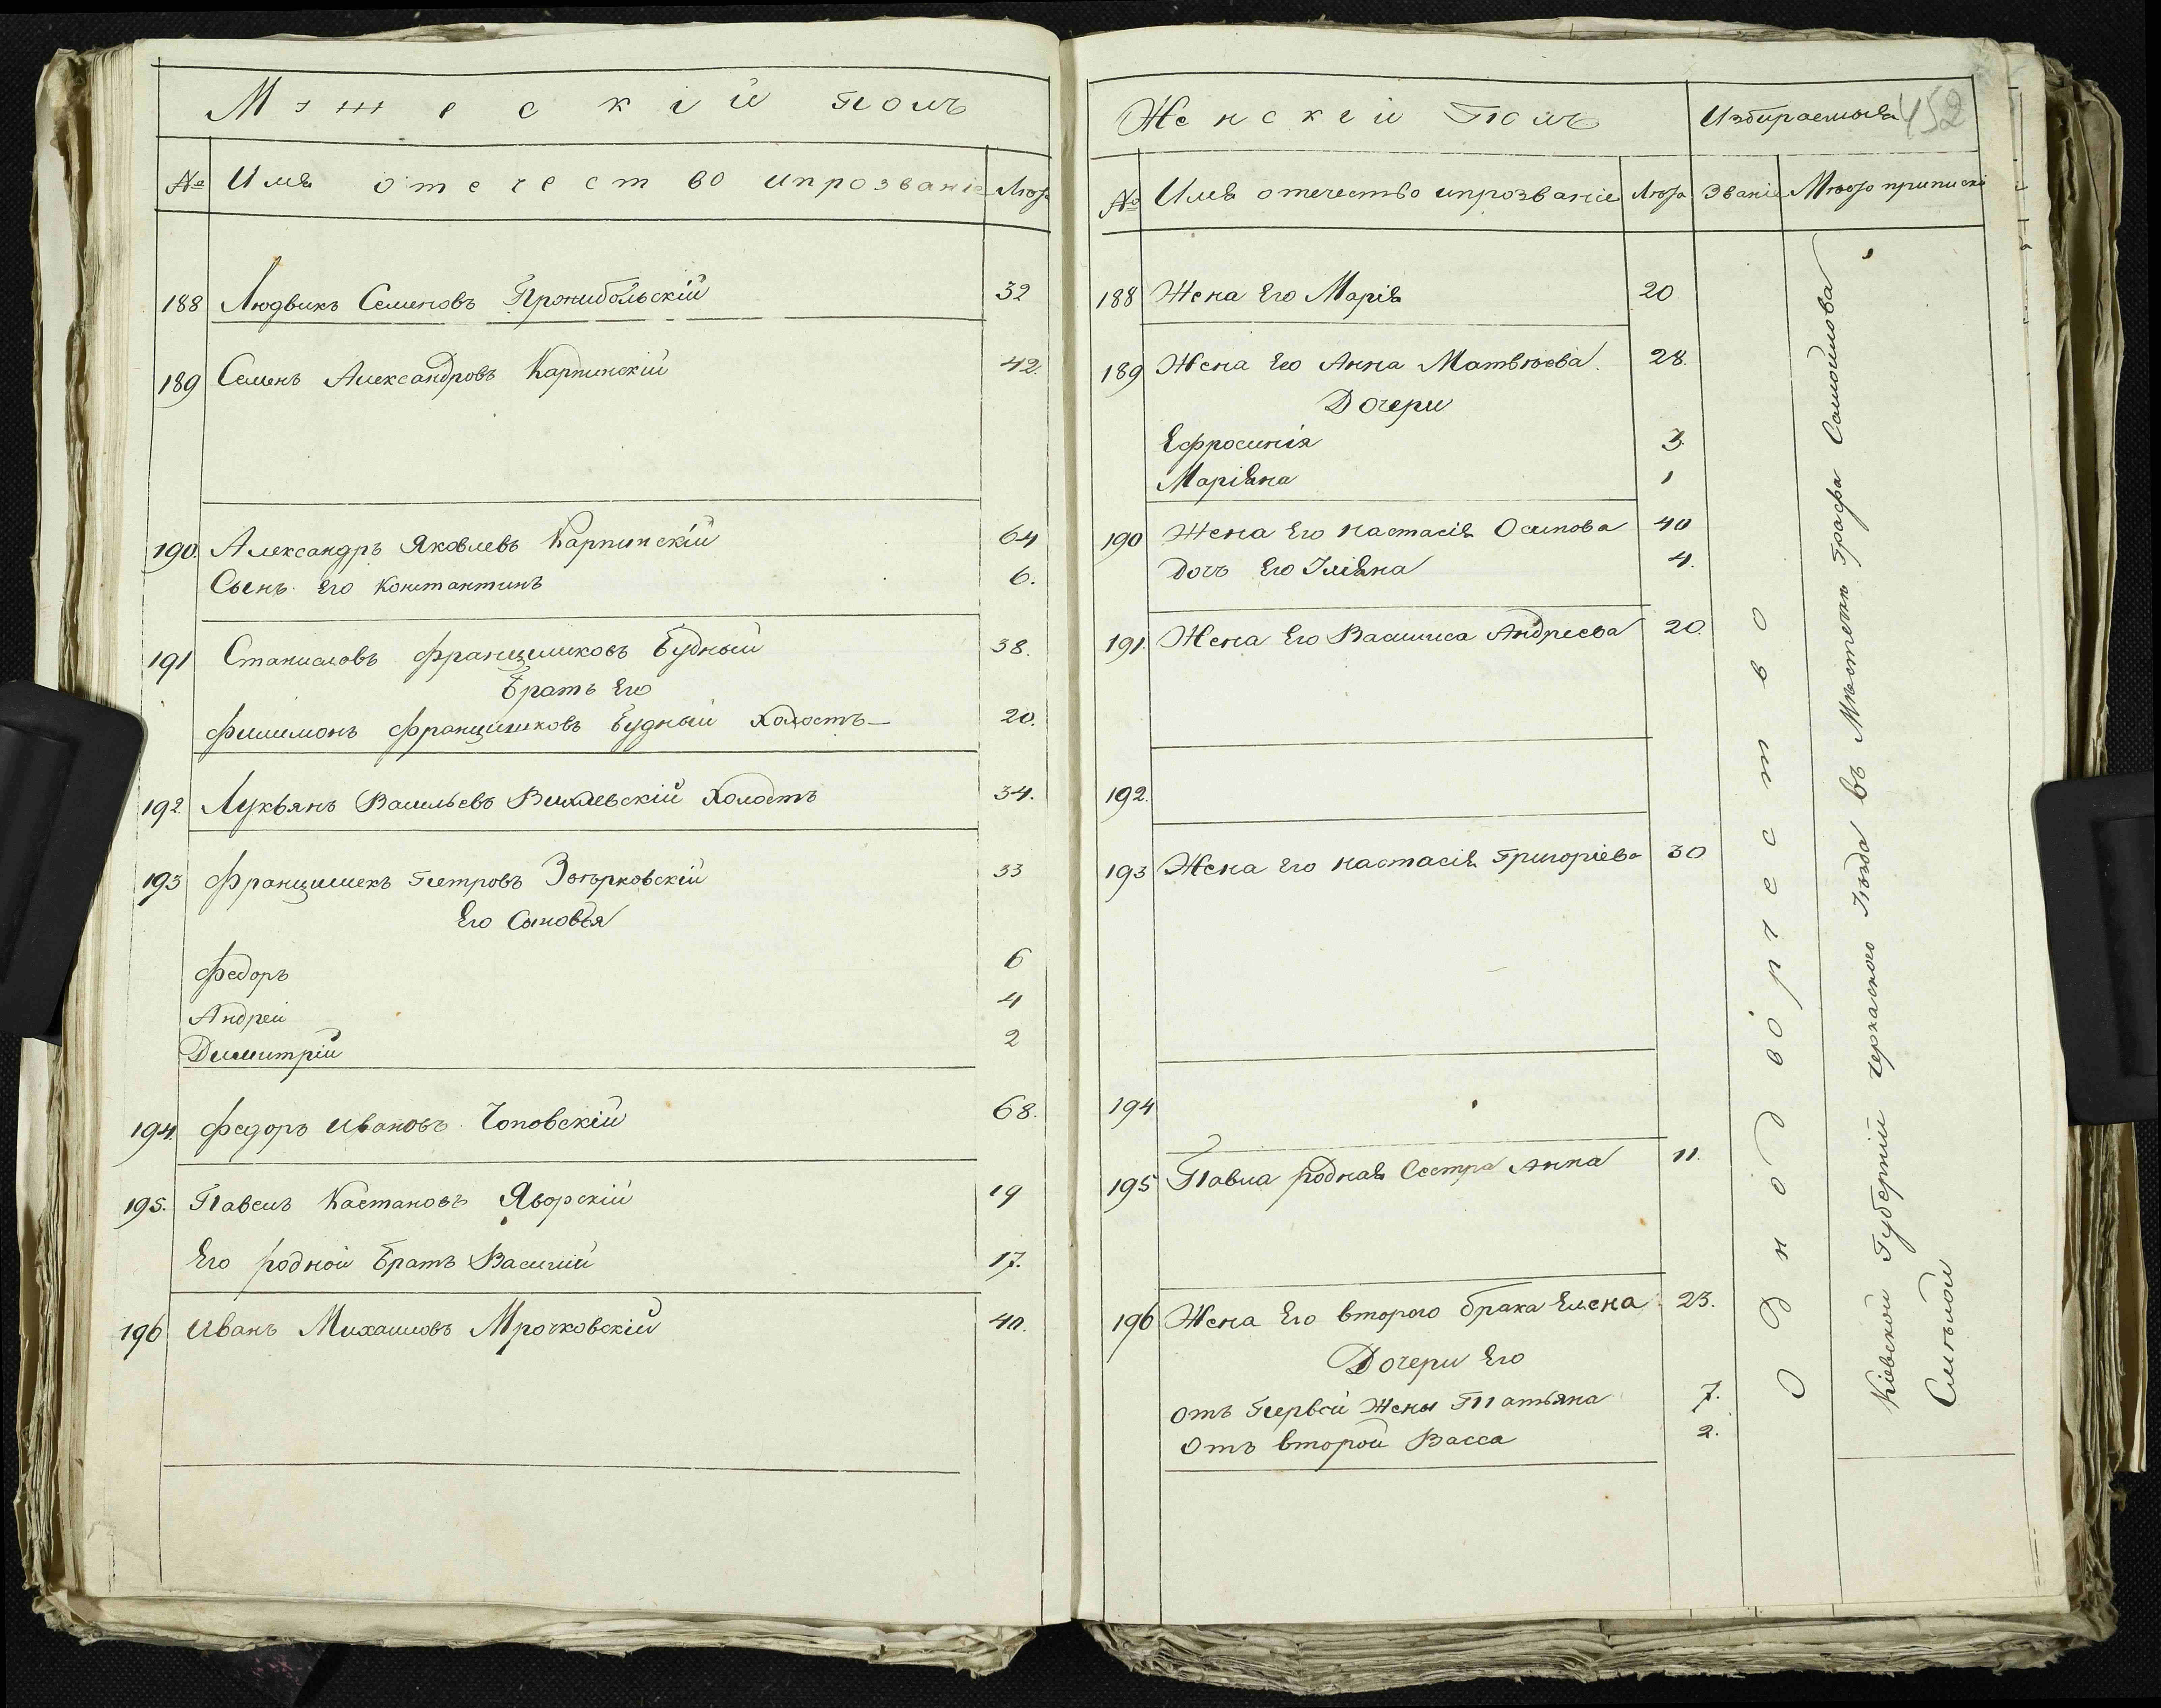 Мужескій полъ
№ Имя отечество ипрозваніе Лѣта
188 Людвикъ Семеновъ Пронибольскій 32
189 Семенъ Александровъ Карпинскій 42.
190. Александръ Яковлевъ Карпинскій 64
Сынъ Его Константинъ 6.
191 Станиславъ Францишковъ Будный 38.
Братъ Его
Филимонъ Францишковъ Будный Холостъ 20.
192. Лукьянъ Васильевъ Вихлевскій Холостъ 34.
193 Францишекъ Петровъ Згорковскій 33
Его Сыновья
Федоръ 6
Андрей 4
Димитрій 2
194. Федоръ Ивановъ Чоповскій 68.
195. Павелъ Каетановъ Яворскій 19
Его родной братъ Василий 17.
196 Иванъ Михаиловъ Мрочковскій 40.
Женскій Полъ Избираемыя 452
№ Имя отечество ипрозваніе Лѣта Званіе Мѣсто приписки
188 Жена Его Марія 20
189 Жена Его Анна Матвѣева. 28.
Дочери
Ефросинія 3.
Маріяна 1
190 Жена Его Настасія Осипова 40
Дочь Его Уліяна 4.
191. Жена Его Василиса Андреева 20.
192.
193 Жена Его Настасія Григоріева 30
194
195 Павла родная Сестра Анна 11.
196 Жена Его второго брака Елена 23.
Дочери Его
отъ Первой Жены Татьяна 7.
Отъ второй Васса 2.
Однодворчество
Кіевской Губерніи черкаского Уѣзда въ Мѣстечкѣ Графа Самойлова
Смелой